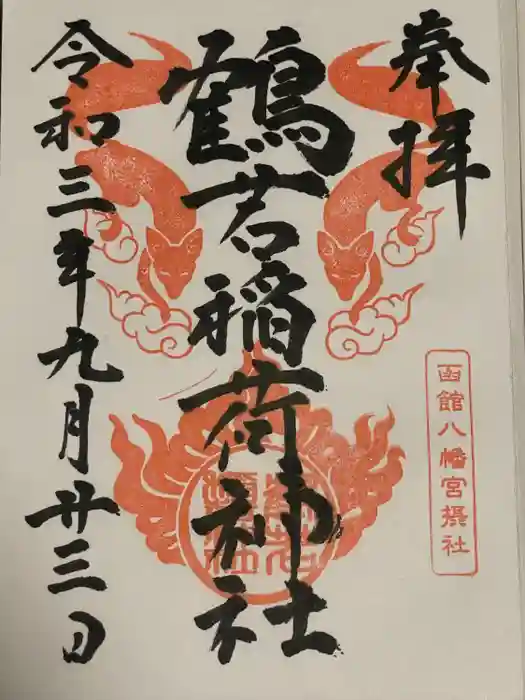 奉拝
函館八幡宮摂社
鶴若稲荷神社
令和三年九月廿三日